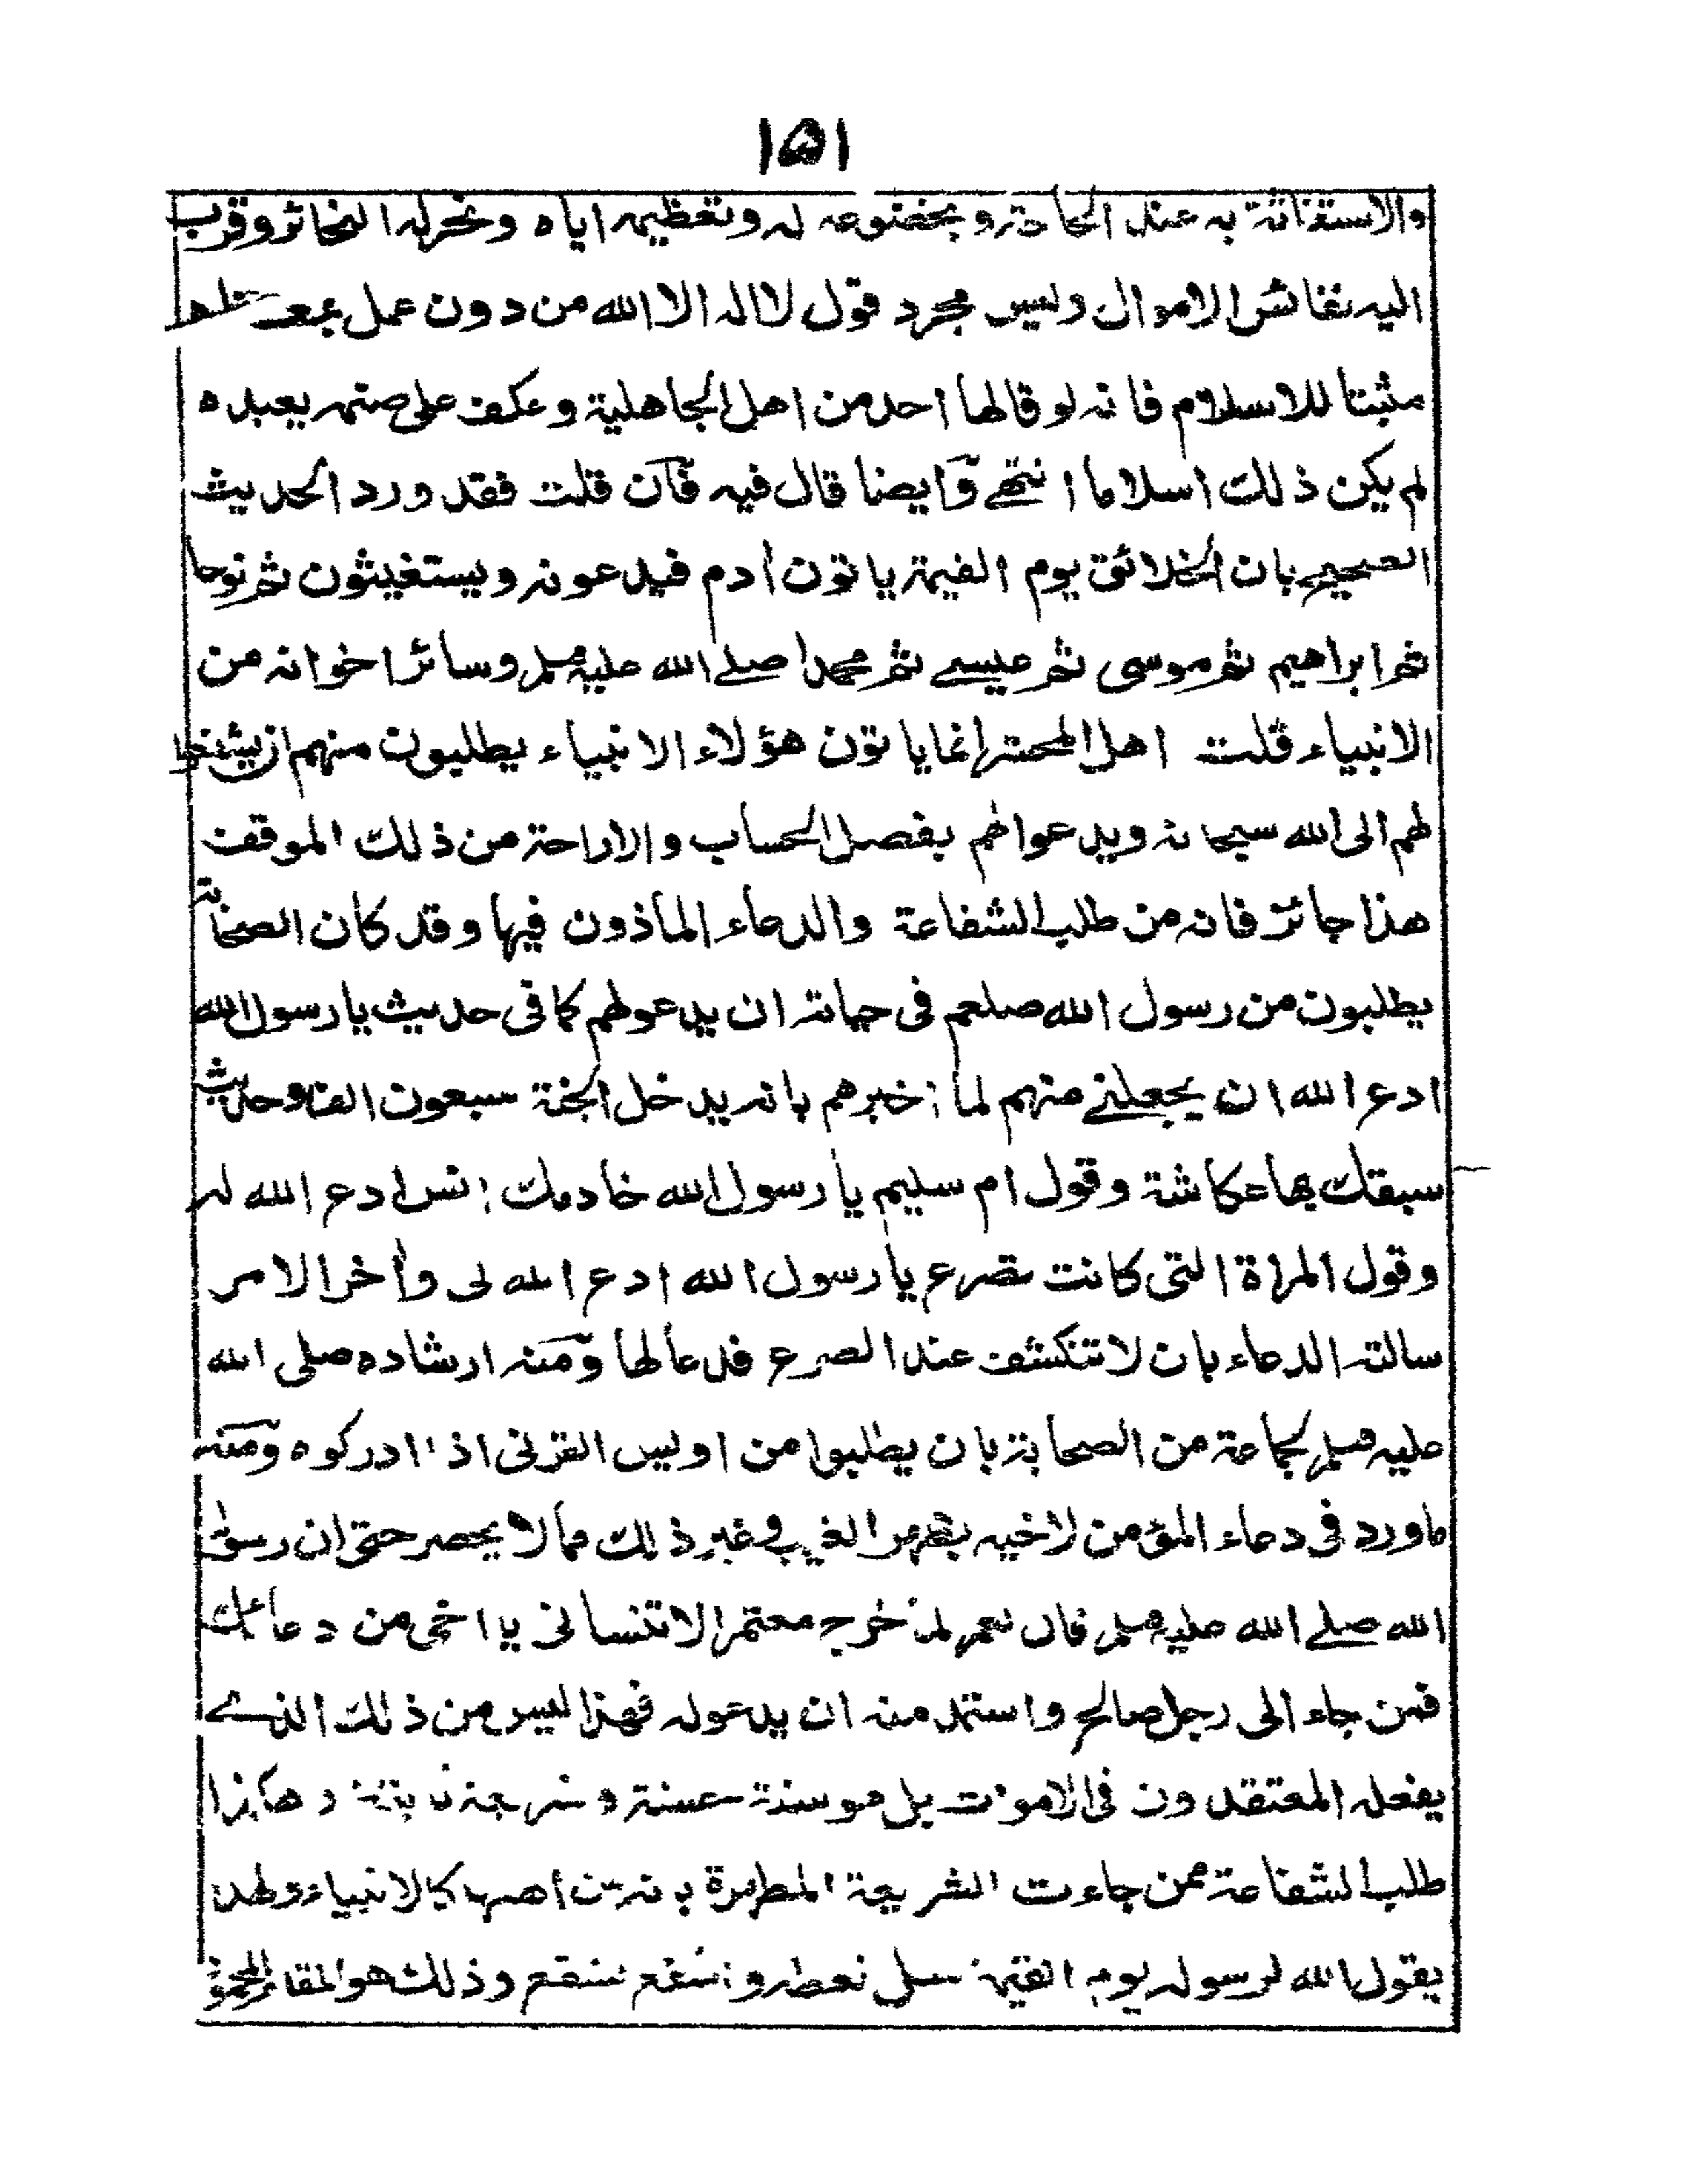 ١٥١
والاستغاثة به عند الحاجة وبخضوعه له وتعظيمه اياه ونحره له النحائر وقرب
اليه نفائس الاموال وليس مجرد قول لا اله الا الله من دون عمل بمعناها
مثبتا للاسلام فانه لو قالها احد من اهل الجاهلية وعكف على صنم يعبده
لم يكن ذلك اسلاما انتهى وايضا قال فيه فان قلت فقد ورد الحديث
الصحيح بان الخلائق يوم القيمة ياتون أدم فيدعونه ويستغيثون ثم نوحا
ثم ابراهيم ثم موسى ثم عيسے ثم محمدا صلے الله عليه وسلم وسائر اخوانه من
الانبياء قلت اهل المحشر انما ياتون هؤلاء الانبياء يطلبون منهم ان يشفعوا
لهم الى الله سبحانه ويدعوا لهم بفصل الحساب والاراحة من ذلك الموقف
هذا جائز فانه من طلب الشفاعة والدعاء الماذون فيها وقد كان الصحابة
يطلبون من رسول الله صلعم فى حياته ان يدعو لهم كما فى حديث يا رسول الله
ادع الله ان يجعلنے منهم لما اخبرهم بانه يدخل الجنة سبعون الفا وحديث
سبقك بها عكاشة وقول ام سليم يا رسول الله خادمك انس ادع الله له
وقول المراة التى كانت تصرع يا رسول الله ادع الله لى وأخر الامر
سالته الدعاء بان لا تنكشف عند الصرع فدعا لها ومنه ارشاده صلى الله
عليه وسلم لجماعة من الصحابة بان يطلبوا من اويس القرنى اذا ادركوه ومنه
ما ورد فى دعاء المؤمن لاخيه بظهر الغيب وغير ذلك مما لا يحصر حتى ان رسول
الله صلے الله عليه وسلم قال لعمر لما خرج معتمرا لا تنسانى يا اخى من دعائك
فمن جاء الى رجل صالح واستمد منه ان يدعو له فهذا ليس من ذلك الذے
يفعله المعتقدون فى الاموات بل هو سنة حسنة وشريعة ثابتة وهكذا
طلب الشفاعة ممن جاءت الشريعة المطهرة بانه من اهلها كالانبياء ولهذا
يقول الله لرسوله يوم القيمة سل تعطه واشفع تشفع وذلك هو المقام المحمود